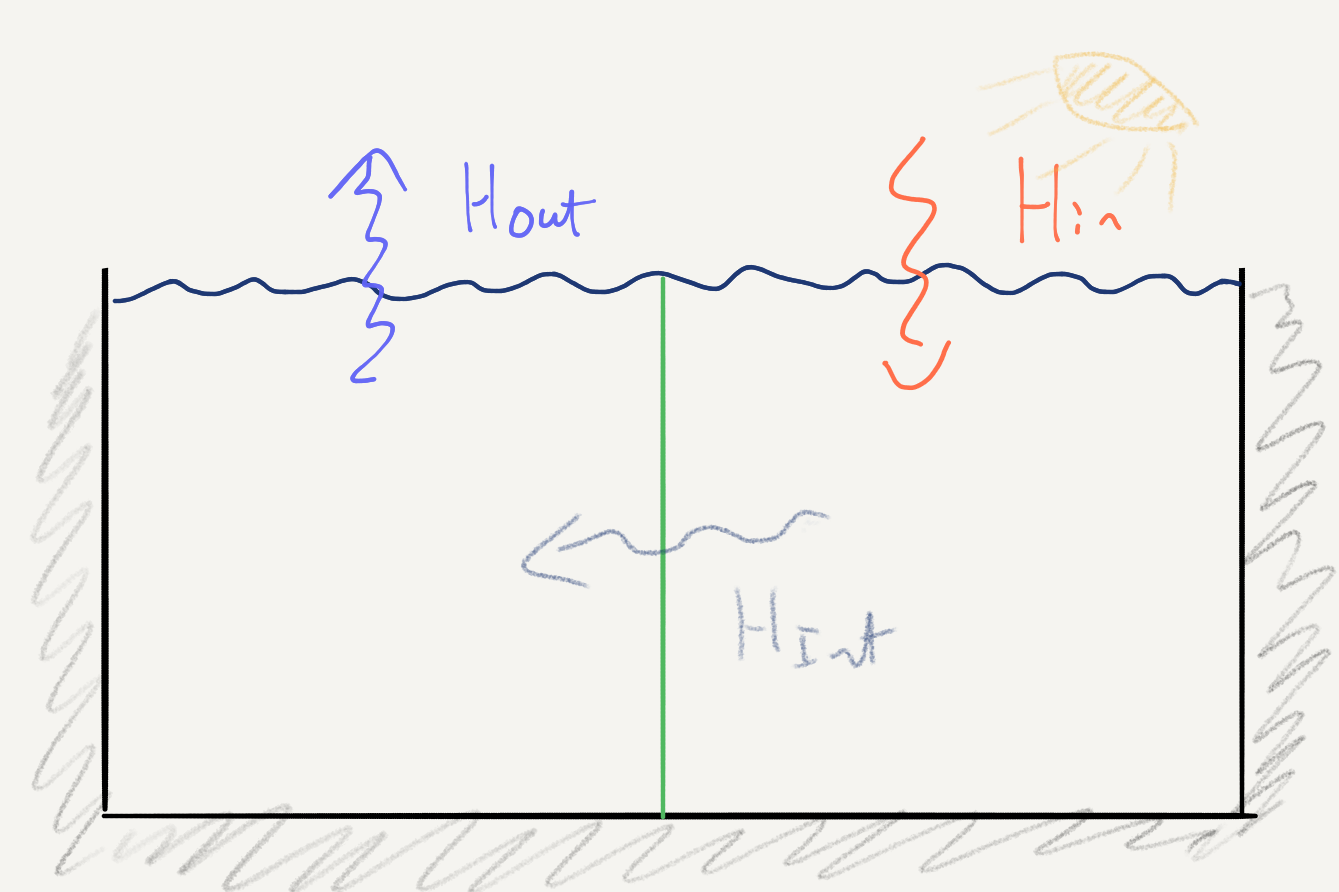 Hout
Hin
HInt